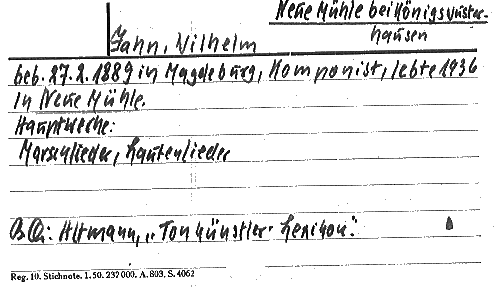 Neue Mühle bei Königswuster-
hausen
Jahn, Wilhelm
geb. 27.2.1889 in Magdeburg, Komponist, lebte 1936
in Neue Mühle.
Hauptwerke:
Marschlieder, Lautenlieder
Altmann, „Tonkünstler-Lexikon".
Reg. 10. Stichnote. 1.50. 232000. A. 803. S. 4062